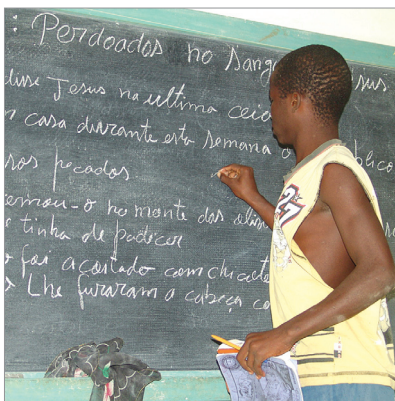 : Perdoados no Sang sus
disse Jesus na ultima ceia
casa durante esta semana o blico
sos pecados
no monte das olive
tinha de padecer
foi açoitado com chicote
Lhe furaram a cabeça co
27